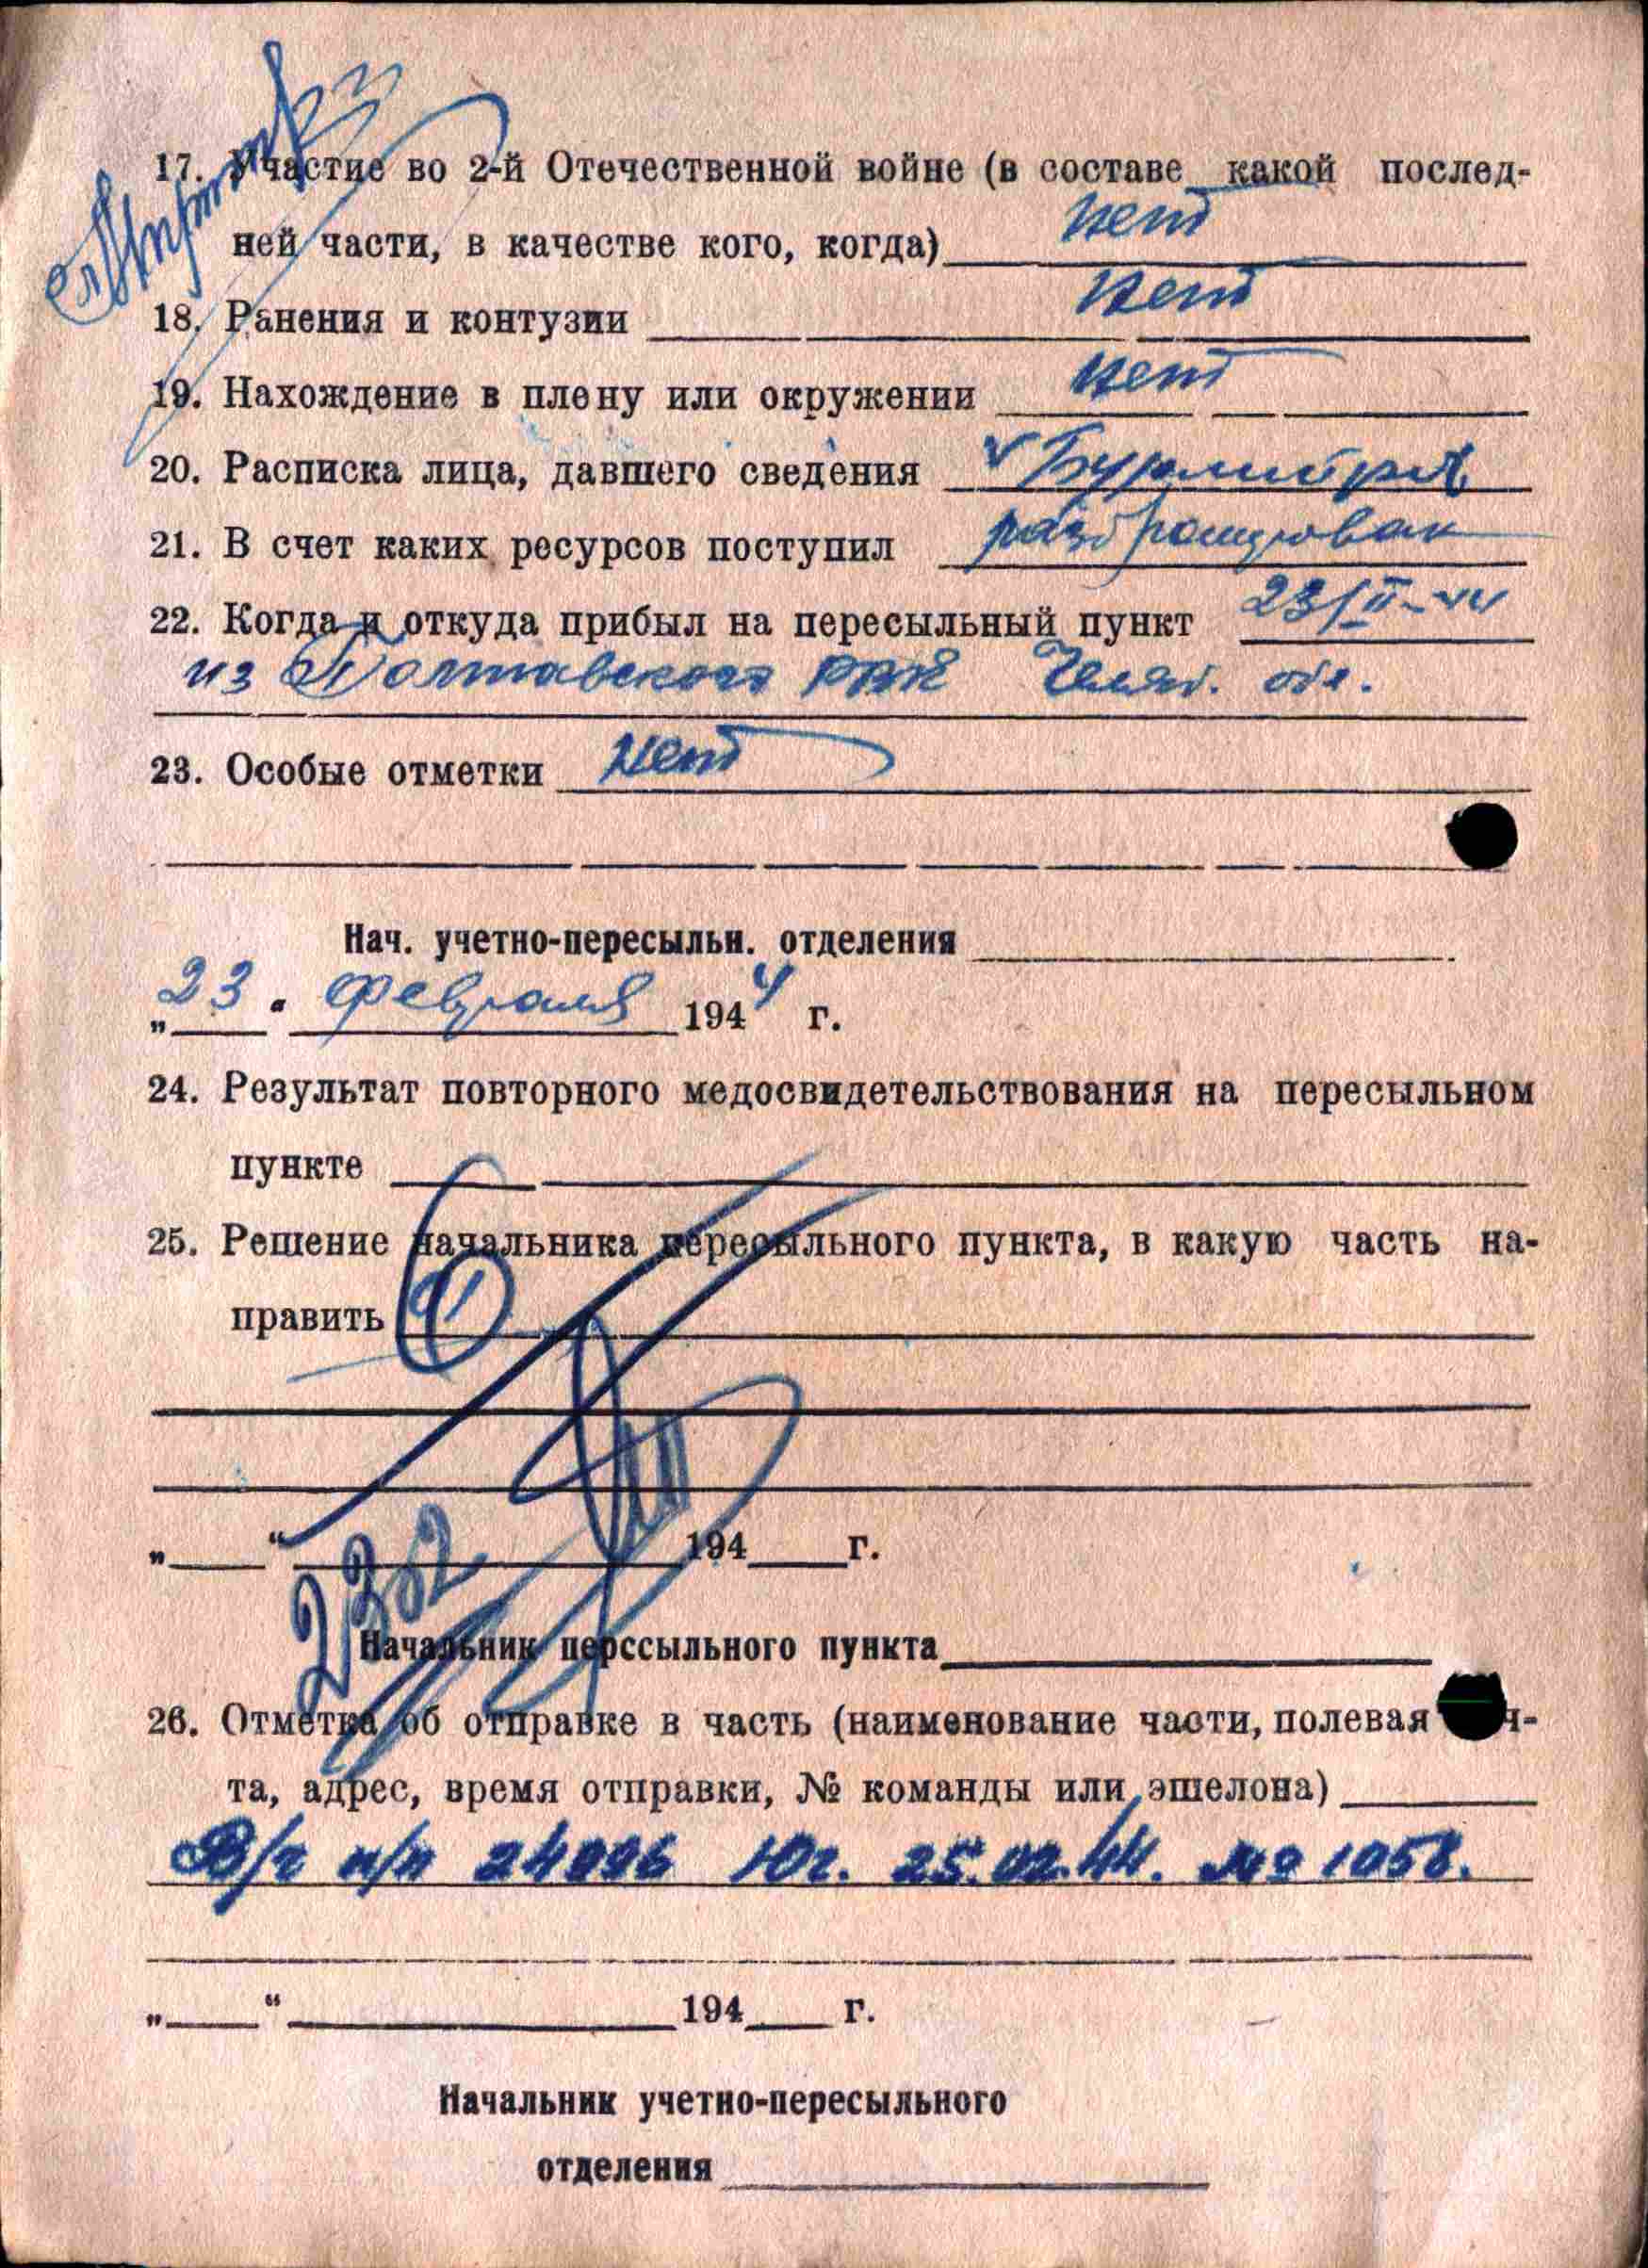 17. Участие во 2-й Отечественной войне (в составе какой послед-
ней части, в качестве кого, когда) нет
18. Ранения и контузии нет
19. Нахождение в плену или окружении нет
20. Расписка лица, давшего сведения
21. В счет каких ресурсов поступил разбронирован
22. Когда и откуда прибыл на пересыльный пункт 23/II-44
из Полтавского РВК Челяб. обл.
23. Особые отметки нет
Нач. учетно-пересыльн. отделения
„23“ февраля 1944 г.
24. Результат повторного медосвидетельствования на пересыльном
пункте
25. Решение начальника пересыльного пункта, в какую часть на-
править
„ “ 194 г.
232
Начальник перссыльного пункта
26. Отметка об отправке в часть (наименование части, полевая ч-
та, адрес, время отправки, № команды или эшелона)
В/ч п/п 24096 25.02.44. № 1058.
„ “ 194 г.
Начальник учетно-пересыльного
отделения